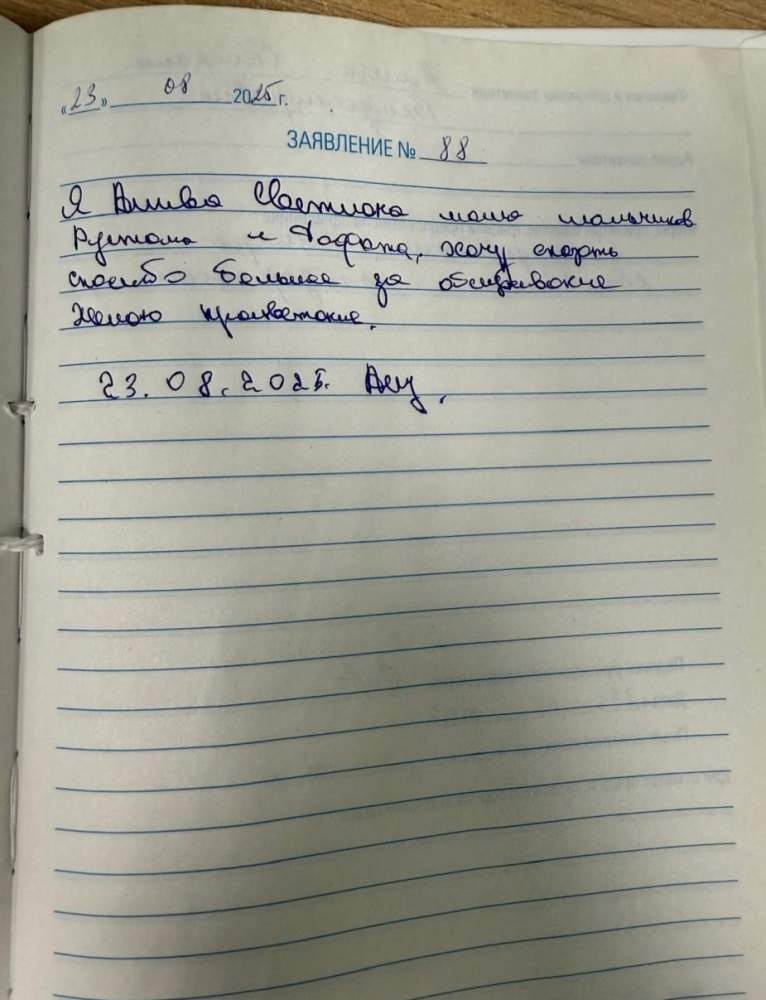 «23» 08 2025 г.
ЗАЯВЛЕНИЕ № 88
Я Алиева Светлана мама мальчиков
Рустама и , хочу сказать
спасибо большое за обслуживание
Желаю процветание.
23.08.2025.